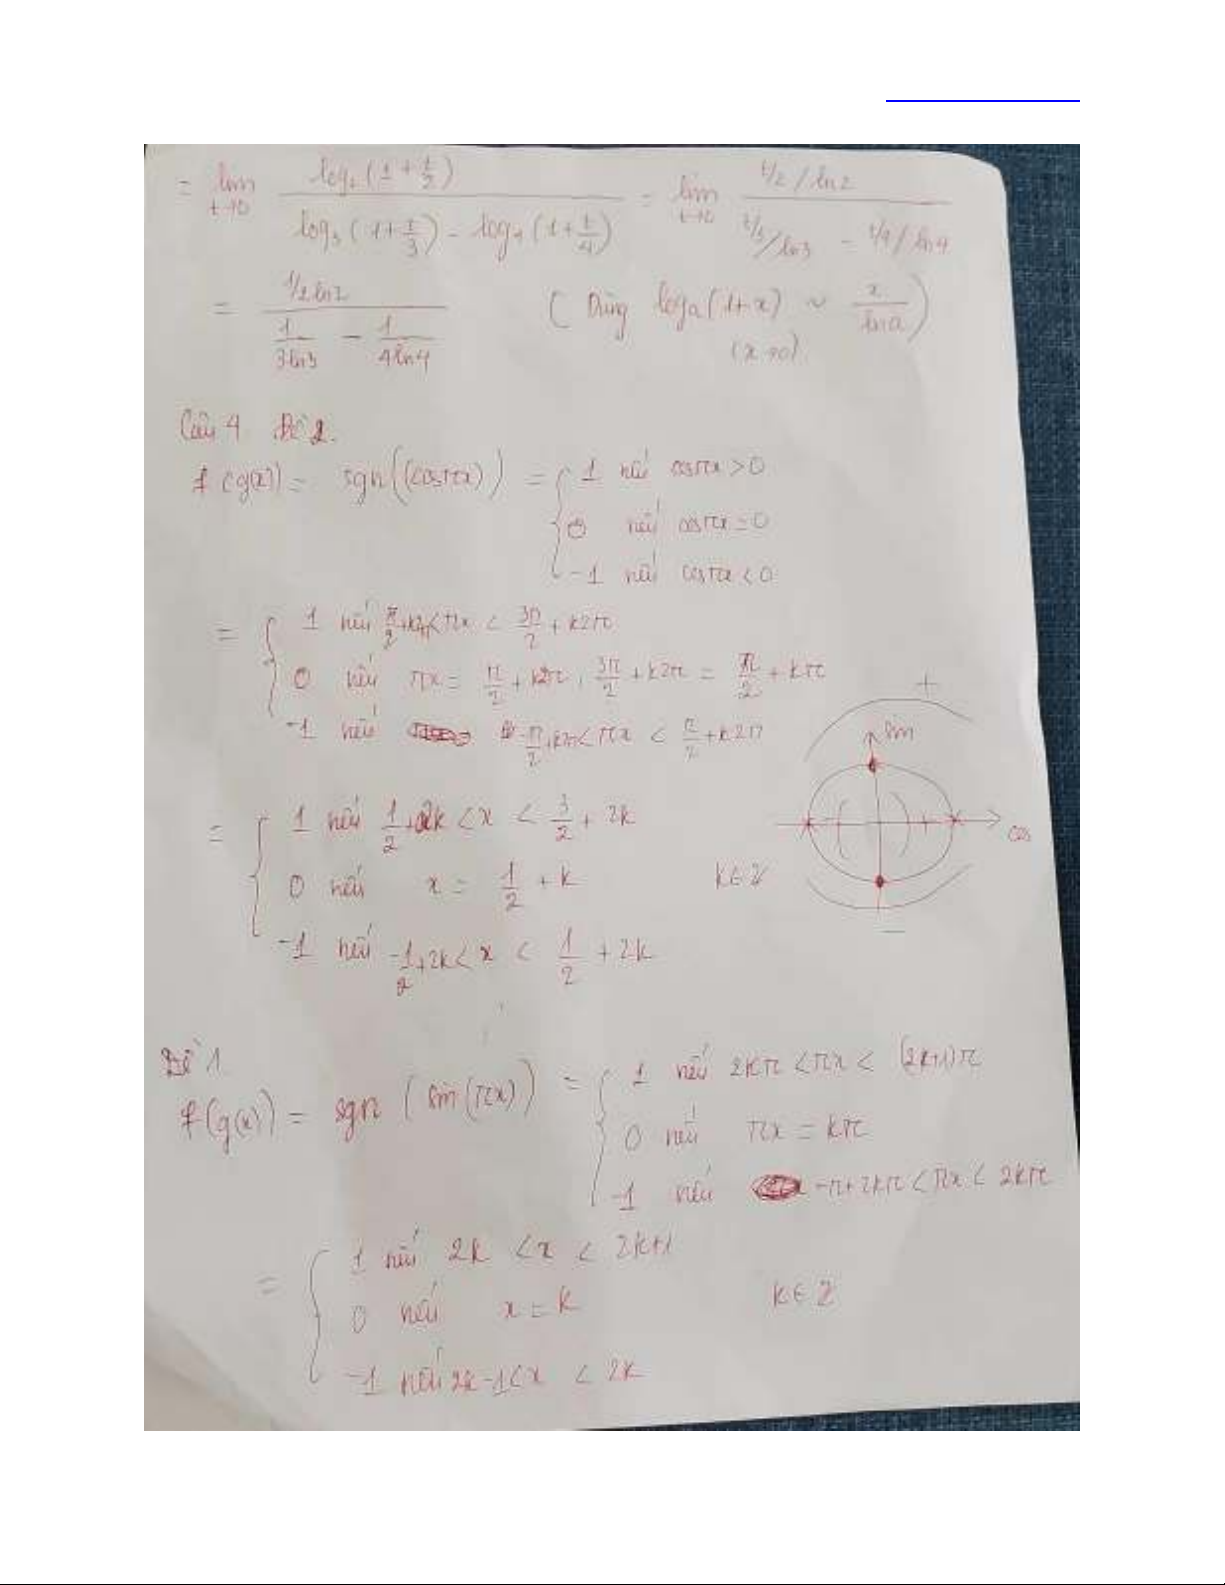 = lim t→0 log₂(1+t/2) / (log₃(1+t/3) - log₄(1+t/4)) = lim t→0 (t/2 / ln2) / (t/3 / ln3 - t/4 / ln4)
= (1/2ln2) / (1/3ln3 - 1/4ln4) ( Dùng logₐ(1+x) ~ x/lna ) (x→0)
Câu 4 Đề 2.
f(g(x)) = sgn((cosπx)) = { 1 nếu cosπx > 0
0 nếu cosπx = 0
-1 nếu cosπx < 0
= { 1 nếu π/2 + k2π < πx < 3π/2 + k2π
0 nếu πx = π/2 + k2π, 3π/2 + k2π = π/2 + kπ
-1 nếu -π/2 + k2π < πx < π/2 + k2π
+
sin
cos
-
= { 1 nếu 1/2 + 2k < x < 3/2 + 2k
0 nếu x = 1/2 + k k∈Z
-1 nếu -1/2 + 2k < x < 1/2 + 2k
Đề 1
f(g(x)) = sgn (sin(πx)) = { 1 nếu 2kπ < πx < (2k+1)π
0 nếu πx = kπ
-1 nếu -π+2kπ < πx < 2kπ
= { 1 nếu 2k < x < 2k+1
0 nếu x = k k∈Z
-1 nếu 2k-1 < x < 2k